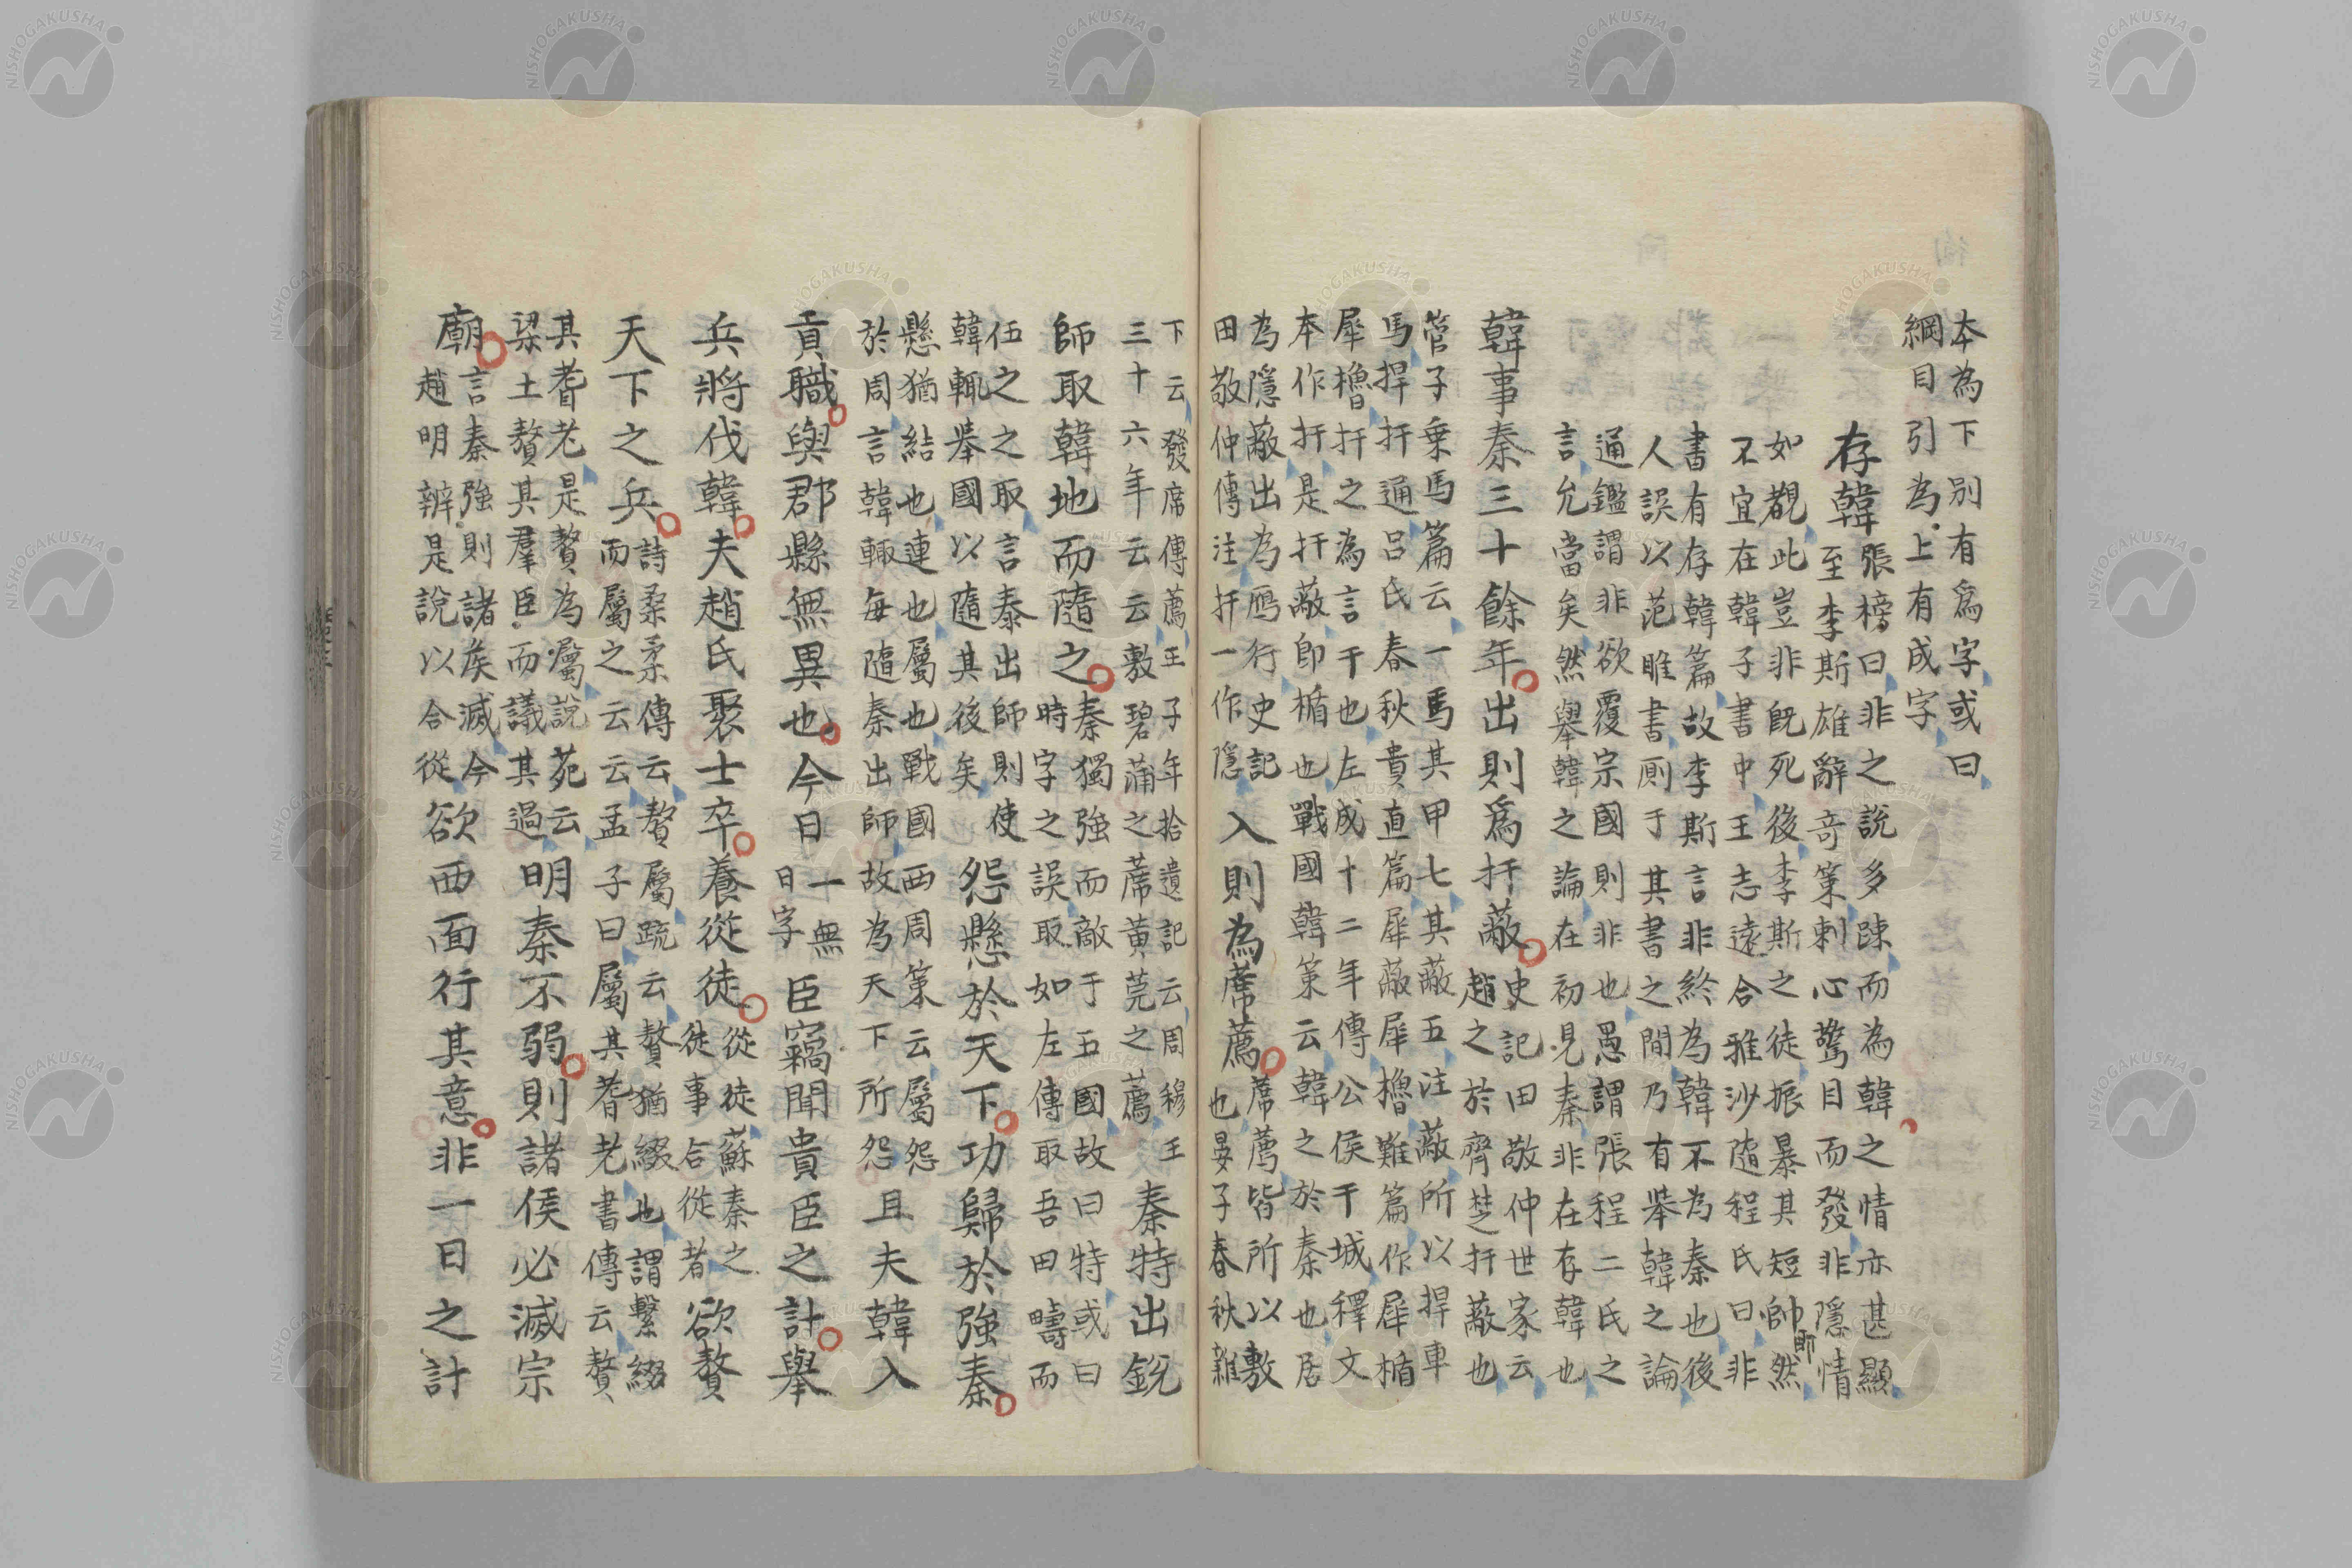 本為下別有爲字或曰
綱目引為上有成字曰
存韓
張榜曰非之說多踈而為韓之情亦甚顯
至李斯雄辭奇策刺心驚目而發非隱情
如覩此豈非既死後李斯之徒振暴其短帥然
即
不宜在韓子書中王志遠合雅沙隨程氏曰非
書有存韓篇故李斯言非終為韓不為秦也後
人誤以范睢書厠于其書之間乃有舉韓之論
通鑑謂非欲覆宗國則非也愚謂張程二氏之
言允當矣然舉韓之論在初見秦非在存韓也
韓事秦三十餘年出則爲扞蔽
史記田敬仲世家云
趙之於齊楚扞蔽也
管子乗馬篇云一馬其甲七其蔽五注蔽所以捍車
馬捍扞通呂氏春秋貴直篇犀蔽犀櫓難篇作犀楯
犀櫓扞之為言干也左成十二年傳公侯干城釋文
本作扞是扞蔽即楯也戰國韓策云韓之於秦也居
為隱蔽出為鴈行史記
田敬仲傳注扞一作隱
入則為蓆薦
蓆薦皆所以敷
也晏子春秋雜
下云發席傳薦王子年拾遺記云周穆王
三十六年云云敷碧蒲之蓆黃莞之薦
秦特出銳
師取韓地而隨之
秦獨強而敵于五國故曰特或曰
時字之誤取如左傳取吾田疇而
伍之之取言秦出師則使
韓輒舉國以隨其後矣
怨懸於天下功歸於強秦
懸猶結也連也屬也戰國西周策云屬怨
於周言韓輙每隨秦出師故為天下所怨
且夫韓入
貢職與郡縣無異也今日
一無
日字
臣竊聞貴臣之計舉
兵將伐韓夫趙氏聚士卒養從徒
從徒蘇秦之
徒事合從者
欲贅
天下之兵
詩桑柔傳云贅屬疏云贅猶綴也謂繫綴
而屬之云云孟子曰屬其耆老書傳云贅
其耆老是贅為屬說苑云
梁土贅其羣臣而議其過
明秦不弱則諸侯必滅宗
廟
言秦強則諸矦滅今
趙明辨是說以合從
欲西面行其意非一日之計